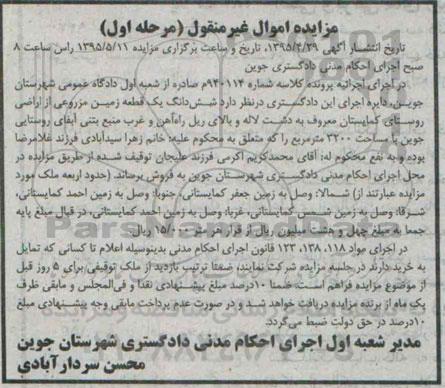 مزایده اموال غیرمنقول (مرحله اول)
تاریخ انتشار آگهی ۱۳۹۵/۴/۲۹، تاریخ و ساعت برگزاری مزایده ۱۳۹۵/۵/۱۱ راس ساعت ۸
صبح اجرای احکام مدنی دادگستری جوین
در اجرای اجرائیه پرونده کلاسه شماره ۹۴۰۱۱۴م صادره از شعبه اول دادگاه عمومی شهرستان
جوین، دایره اجرای این دادگستری درنظر دارد شش‌دانگ یک قطعه زمین مزروعی از اراضی
روستای کمایستان معروف به دشت لاله و بالای ریل راه‌آهن و غرب منبع بتنی آبفای روستایی
جوین با مساحت ۳۲۰۰ مترمربع را که متعلق به محکوم علیه: خانم زهرا سیدآبادی فرزند غلامرضا
بوده و به نفع محکوم له: آقای محمدکریم اکرمی فرزند علیجان توقیف شده از طریق مزایده در
محل اجرای احکام مدنی دادگستری شهرستان جوین به فروش برساند. (حدود اربعه ملک مورد
مزایده عبارتند از) شمالا: وصل به زمین جعفر کمایستانی، جنوبا: وصل به زمین احمد کمایستانی،
شرقا: وصل به زمین شمس کمایستانی، غربا: وصل به زمین احمد کمایستانی، در قبال مبلغ پایه
جمعا به مبلغ چهل و هشت میلیون ریال از قرار هر متر ۱۵/۰۰۰ ریال
در اجرای مواد ۱۱۸، ۱۳۸، ۱۲۳ قانون اجرای احکام مدنی بدینوسیله اعلام تا کسانی که تمایل
به خرید دارند در جلسه مزایده شرکت نمایند، ضمنا ترتیب بازدید از ملک توقیفی برای ۵ روز قبل
از موضوع مزایده فراهم است. ضمنا ۱۰درصد مبلغ پیشنهادی نقدا و فی‌المجلس و مابقی ظرف
یک ماه از برنده مزایده دریافت خواهد شد و در صورت عدم پرداخت مابقی وجه پیشنهادی مبلغ
۱۰درصد در حق دولت ضبط می‌گردد.
مدیر شعبه اول اجرای احکام مدنی دادگستری شهرستان جوین
محسن سردارآبادی